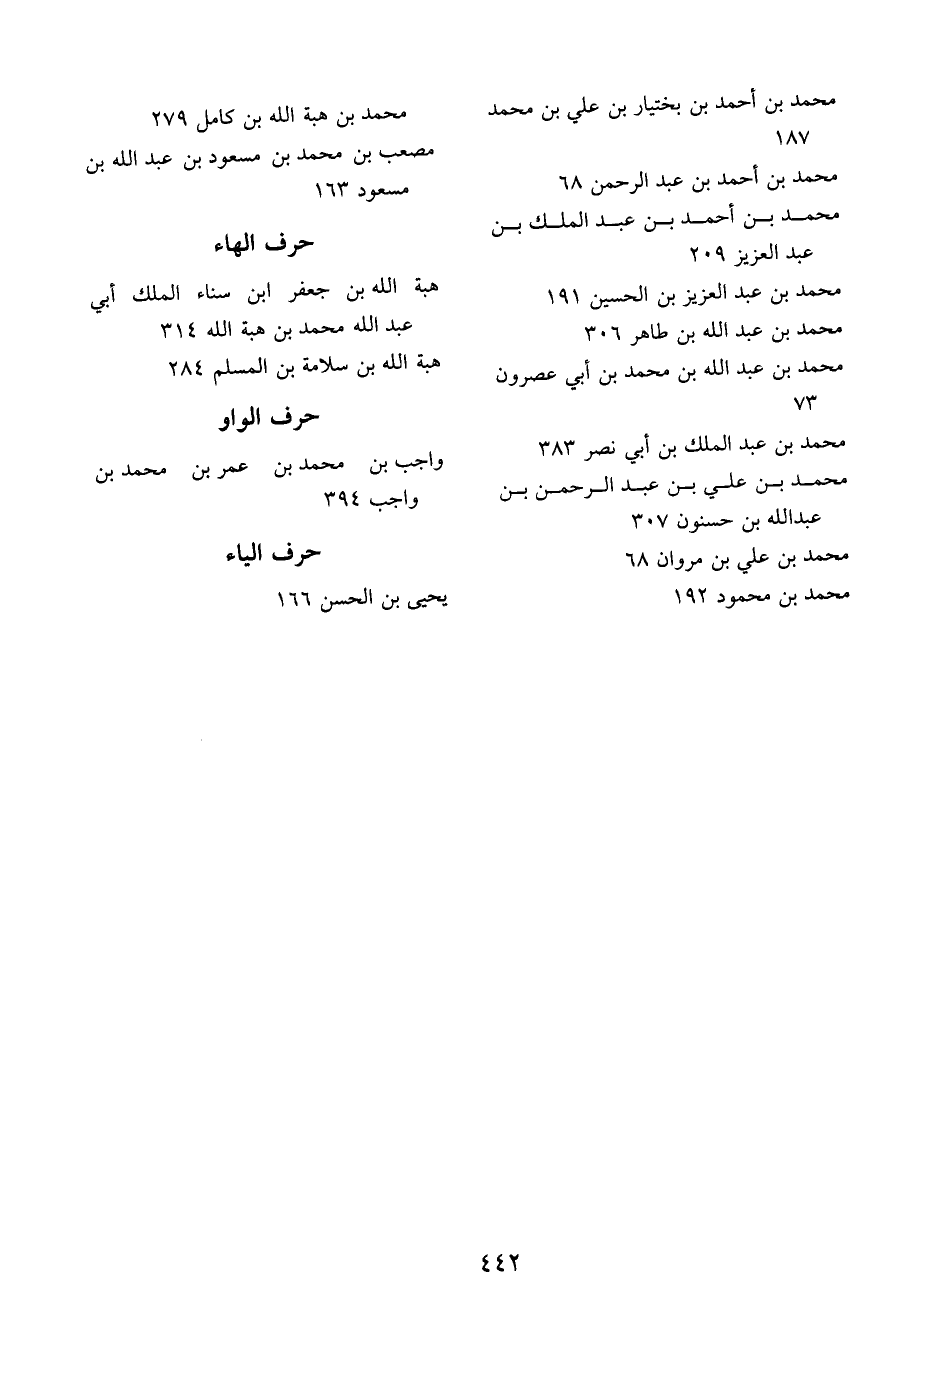 محمد بن أحمد بن بختيار بن علي بن محمد
١٨٧
محمد بن أحمد بن عبد الرحمن ٦٨
محمـد بـن أحمـد بـن عبـد الملـك بـن
عبد العزيز ٢٠٩
محمد بن عبد العزيز بن الحسين ١٩١
محمد بن عبد الله بن طاهر ٣٠٦
محمد بن عبد الله بن محمد بن أبي عصرون
٧٣
محمد بن عبد الملك بن أبي نصر ٣٨٣
محمـد بـن علـي بـن عبـد الـرحمـن بـن
عبدالله بن حسنون ٣٠٧
محمد بن علي بن مروان ٦٨
محمد بن محمود ١٩٢
محمد بن هبة الله بن كامل ٢٧٩
مصعب بن محمد بن مسعود بن عبد الله بن
مسعود ١٦٣
حرف الهاء
هبة الله بن جعفر ابن سناء الملك أبي
عبد الله محمد بن هبة الله ٣١٤
هبة الله بن سلامة بن المسلم ٢٨٤
حرف الواو
واجب بن محمد بن عمر بن محمد بن
واجب ٣٩٤
حرف الياء
يحيى بن الحسن ١٦٦
٤٤٢